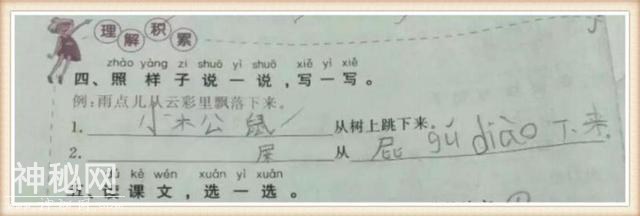 理解积累
zhào yàng zi shuō yì shuō xiě yì xiě
四、照样子说一说，写一写。
例：雨点儿从云彩里飘落下来。
1. 小木公鼠 从树上跳下来。
2. 屎 从 屁gǔ diào下来。
dú kè wén xuǎn yì xuǎn
五、读课文，选一选。
神秘网